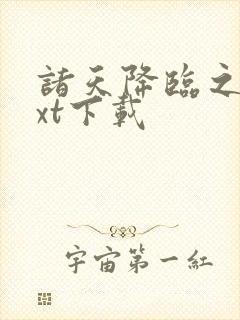 諸天降臨之
xt下載
宇宙第一紅